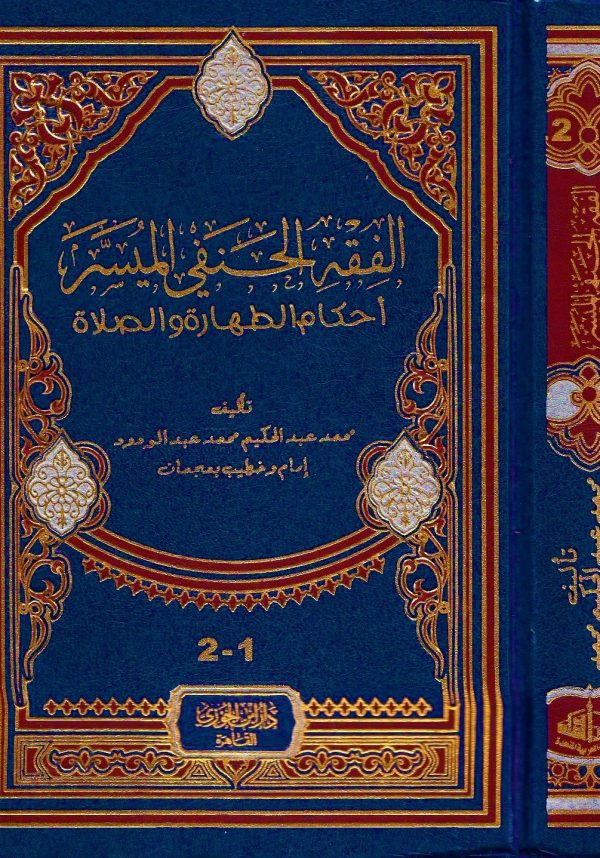 الفِقْهِ الحَنَفِي المُيسَّر
أحكام الطهارة والصلاة
تأليف
محمد عبد الحكيم محمد عبد الودود
إمام وخطيب بعجمان
2-1
دار ابن الجوزي
القاهرة
2
الفقه الحنفي الميسر
تأليف
محمد عبد الحكيم محمد